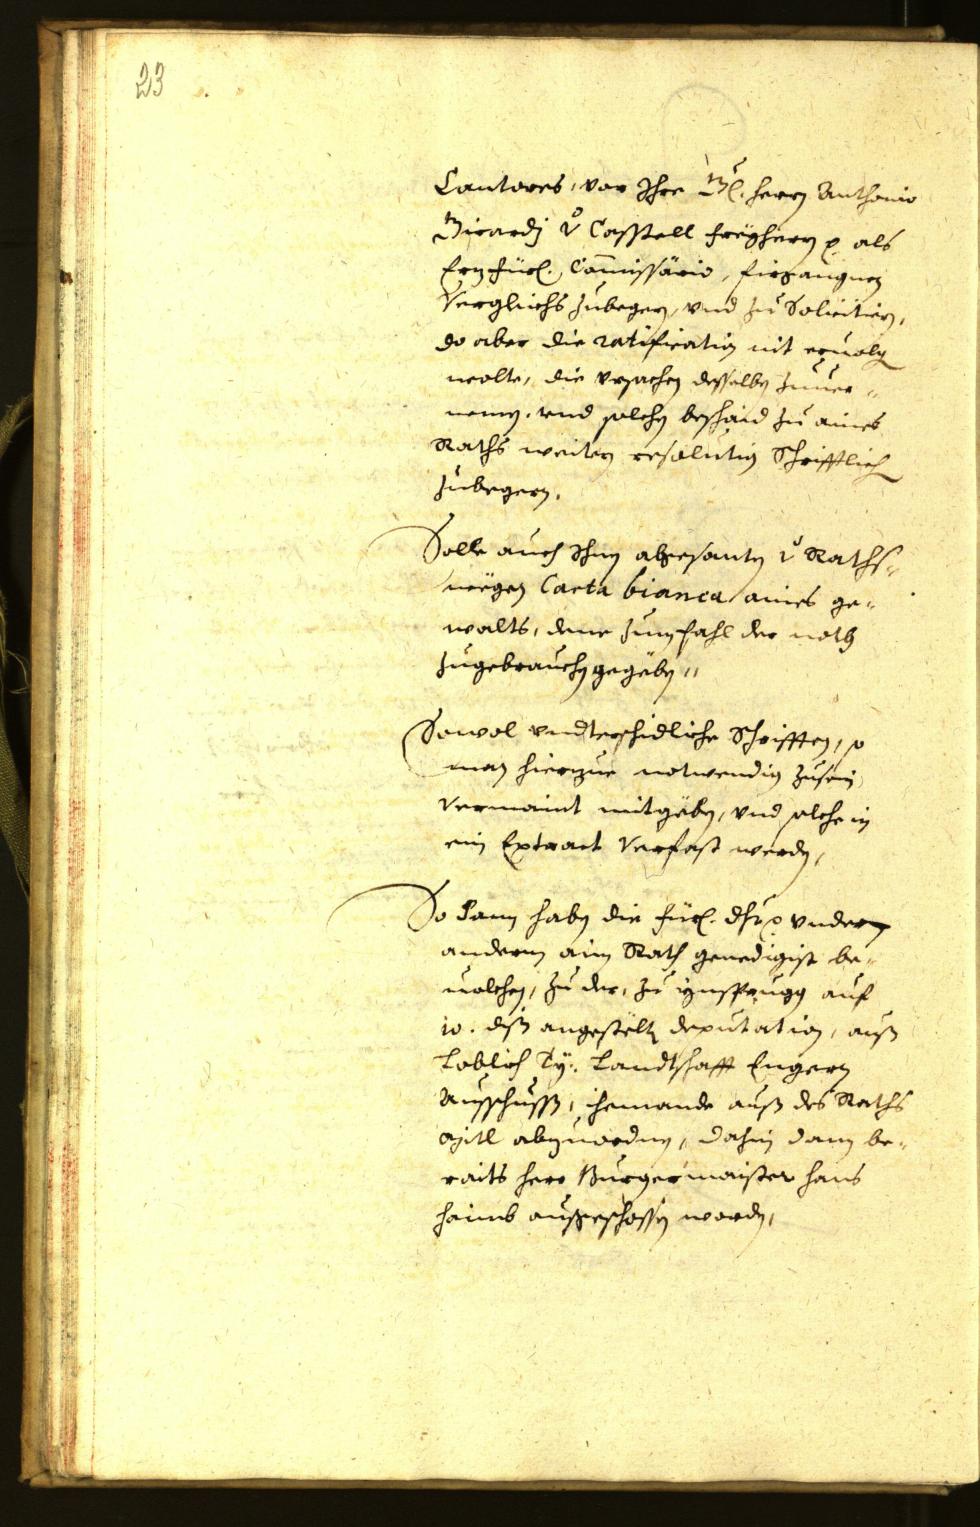 23
Cantores, vor Ihre Gl. herrn Anthonio
Girardj v Casstell freÿherrn als
Ern fürl. Comissàrio, fürgangnen
Verglichs zubegern, vnd zu Solicitiern,
do aber die ratification nit eruolgen
wolte, die vrsachen desselben zuuer-
nemen, vnd solchen beschaid zu aines
Raths weitern resolution Schrifftlich
zubegern.
Solle auch Ihnen abgesanten v Raths-
wegen Carta bianca aines ge-
walts, deme zum fahl der noth
zugebrauchen gegeben
Sowol vndterschidliche Schrifften, so
man hierzue notwendig zusein
Vermaint mitgeben, vnd solche in
ein Extract Verfast werden,
So dann haben die fürl. dht vndern
anderm aim Rath genedigist be-
uolchen, zu der, zu Ynsprugg auf
10. diß angestelten deputation, auß
Loblich Tÿ. Landtschafft Engern
Ausschuss, iemande auß des Raths
mitl abzuordnen, dahin dann be-
raits herr Burgermaister hans
haimb ausgeschossen worden,